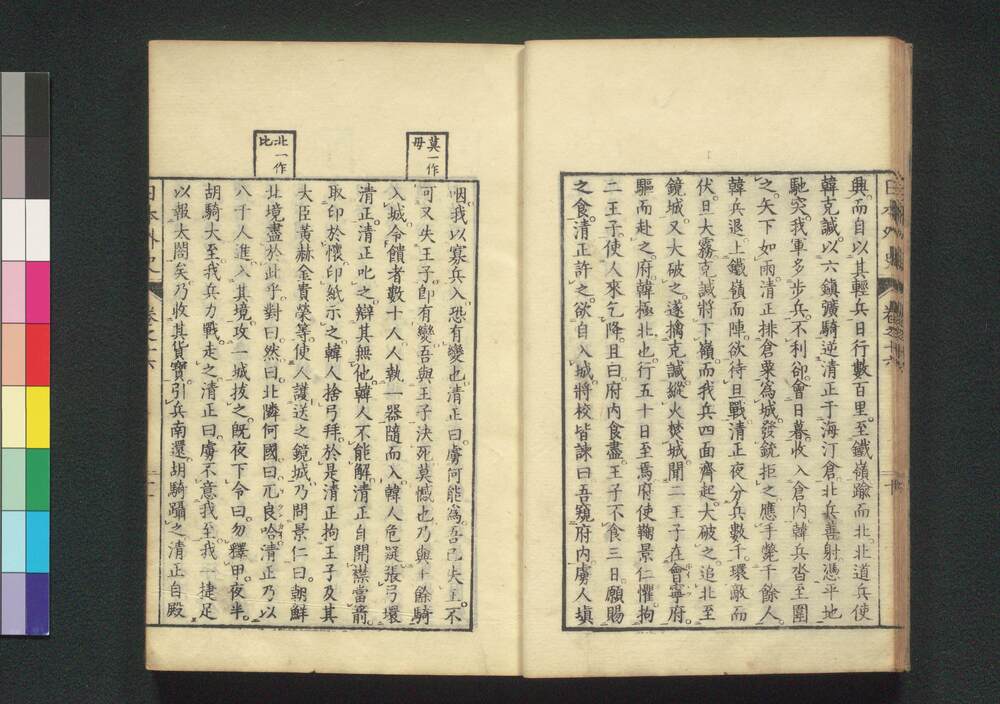 興而自以其輕兵日行數百里至鐵嶺踰而北北道兵使
韓克諴以六鎭彍騎逆淸正于海汀倉北兵善射憑平地
馳突我軍多步兵不利卻會日暮收入倉內韓兵沓至圍
之矢下如雨淸正排倉粟爲城發銃拒之應手斃千餘人
韓兵退上鐵嶺而陣欲待旦戰淸正夜分兵數千環敵而
伏旦大霧克諴將下嶺而我兵四面齊起大破之追北至
鏡城又大破之遂擒克諴縱火焚城聞二王子在會寧府
驅而赴之府韓極北也行五十日至焉府使鞠景仁懼拘
二王子使人來乞降且曰府內食盡王子不食三日願賜
之食淸正許之欲自入城將校皆諫曰吾窺府內虜人塡
咽我以寡兵入恐有變也淸正曰虜何能爲吾已失王不
可又失王子卽有變吾與王子決死莫憾也乃與十餘騎
入城令饋者數十人人執一器隨而入韓人危疑張弓環
淸正淸正叱之辯其無他韓人不能解淸正自開襟當箭
取印於懷印紙示之韓人捨弓拜於是淸正拘王子及其
大臣黃赫金貴榮等使人護送之鏡城乃問景仁曰朝鮮
北境盡於此乎對曰然曰北隣何國曰兀良哈淸正乃以
八千人進入其境攻一城拔之旣夜下令曰勿釋甲夜半
胡騎大至我兵力戰走之淸正曰虜不意我至我一捷足
以報太閤矣乃收其貨寶引兵南還胡騎躡之淸正自殿
莫一作
毋
北一作
比